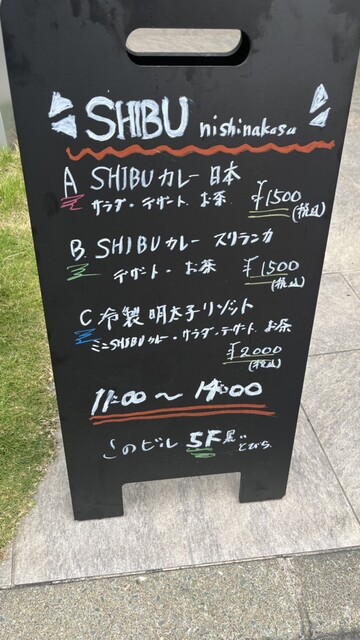 SHIBU nishinakasu
A SHIBUカレー 日本
サラダ・デザート お茶 ¥1500
(税込)
B. SHIBUカレー スリランカ
デザート・お茶 ¥1500
(税込)
C 冷製 明太子リゾット
ミニSHIBUカレー・サラダ・デザート お茶
¥2000
(税込)
11:00 〜 14:00
このビル 5F 展とびら